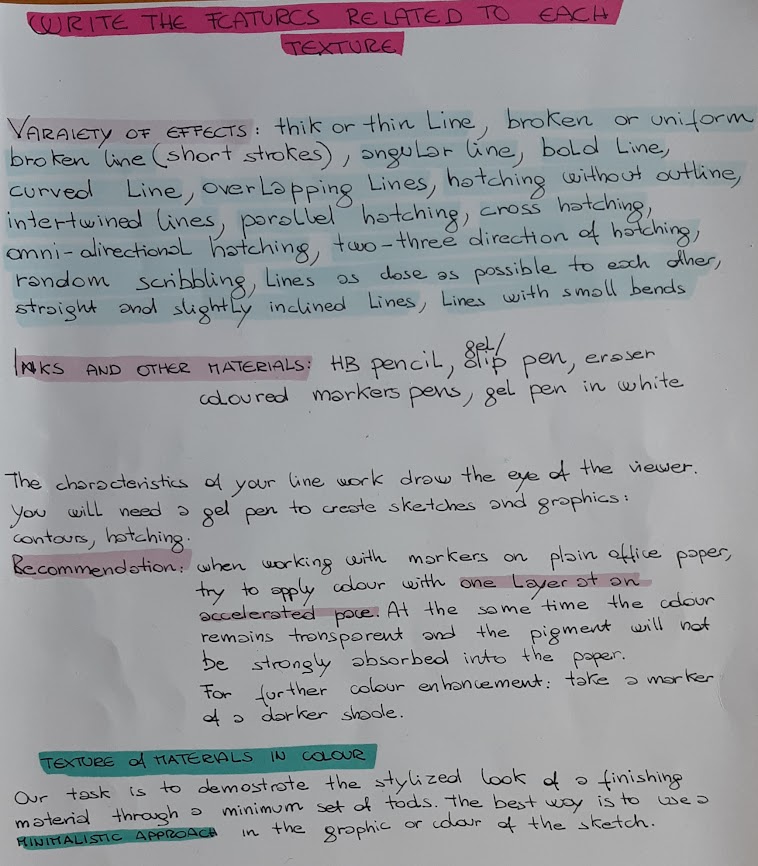 WRITE THE FEATURES RELATED TO EACH
TEXTURE
VARAIETY OF EFFECTS: thik or thin Line, broken or uniform
broken line (short strokes), angular line, bold Line,
curved Line, overLapping Lines, hatching without outline,
intertwined lines, parallel hatching, cross hatching,
omni-directional hatching, two-three direction of hatching,
random scribbling, Lines as close as possible to each other,
straight and slightly inclined Lines, Lines with small bends
INKS AND OTHER MATERIALS: HB pencil, gel/dlip pen, eraser
coloured markers pens, gel pen in white
The characteristics of your line work draw the eye of the viewer.
You will need a gel pen to create sketches and graphics:
contours, hatching.
Recommendation: when working with markers on plain office paper,
try to apply colour with one Layer at an
accelerated pace. At the same time the colour
remains transparent and the pigment will not
be strongly absorbed into the paper.
For further colour enhancement: take a marker
of a darker shade.
TEXTURE of MATERIALS IN COLOUR
Our task is to demostrate the stylized look of a finishing
material through a minimum set of tools. The best way is to use a
MINIMALISTIC APPROACH in the graphic or colour of the sketch.